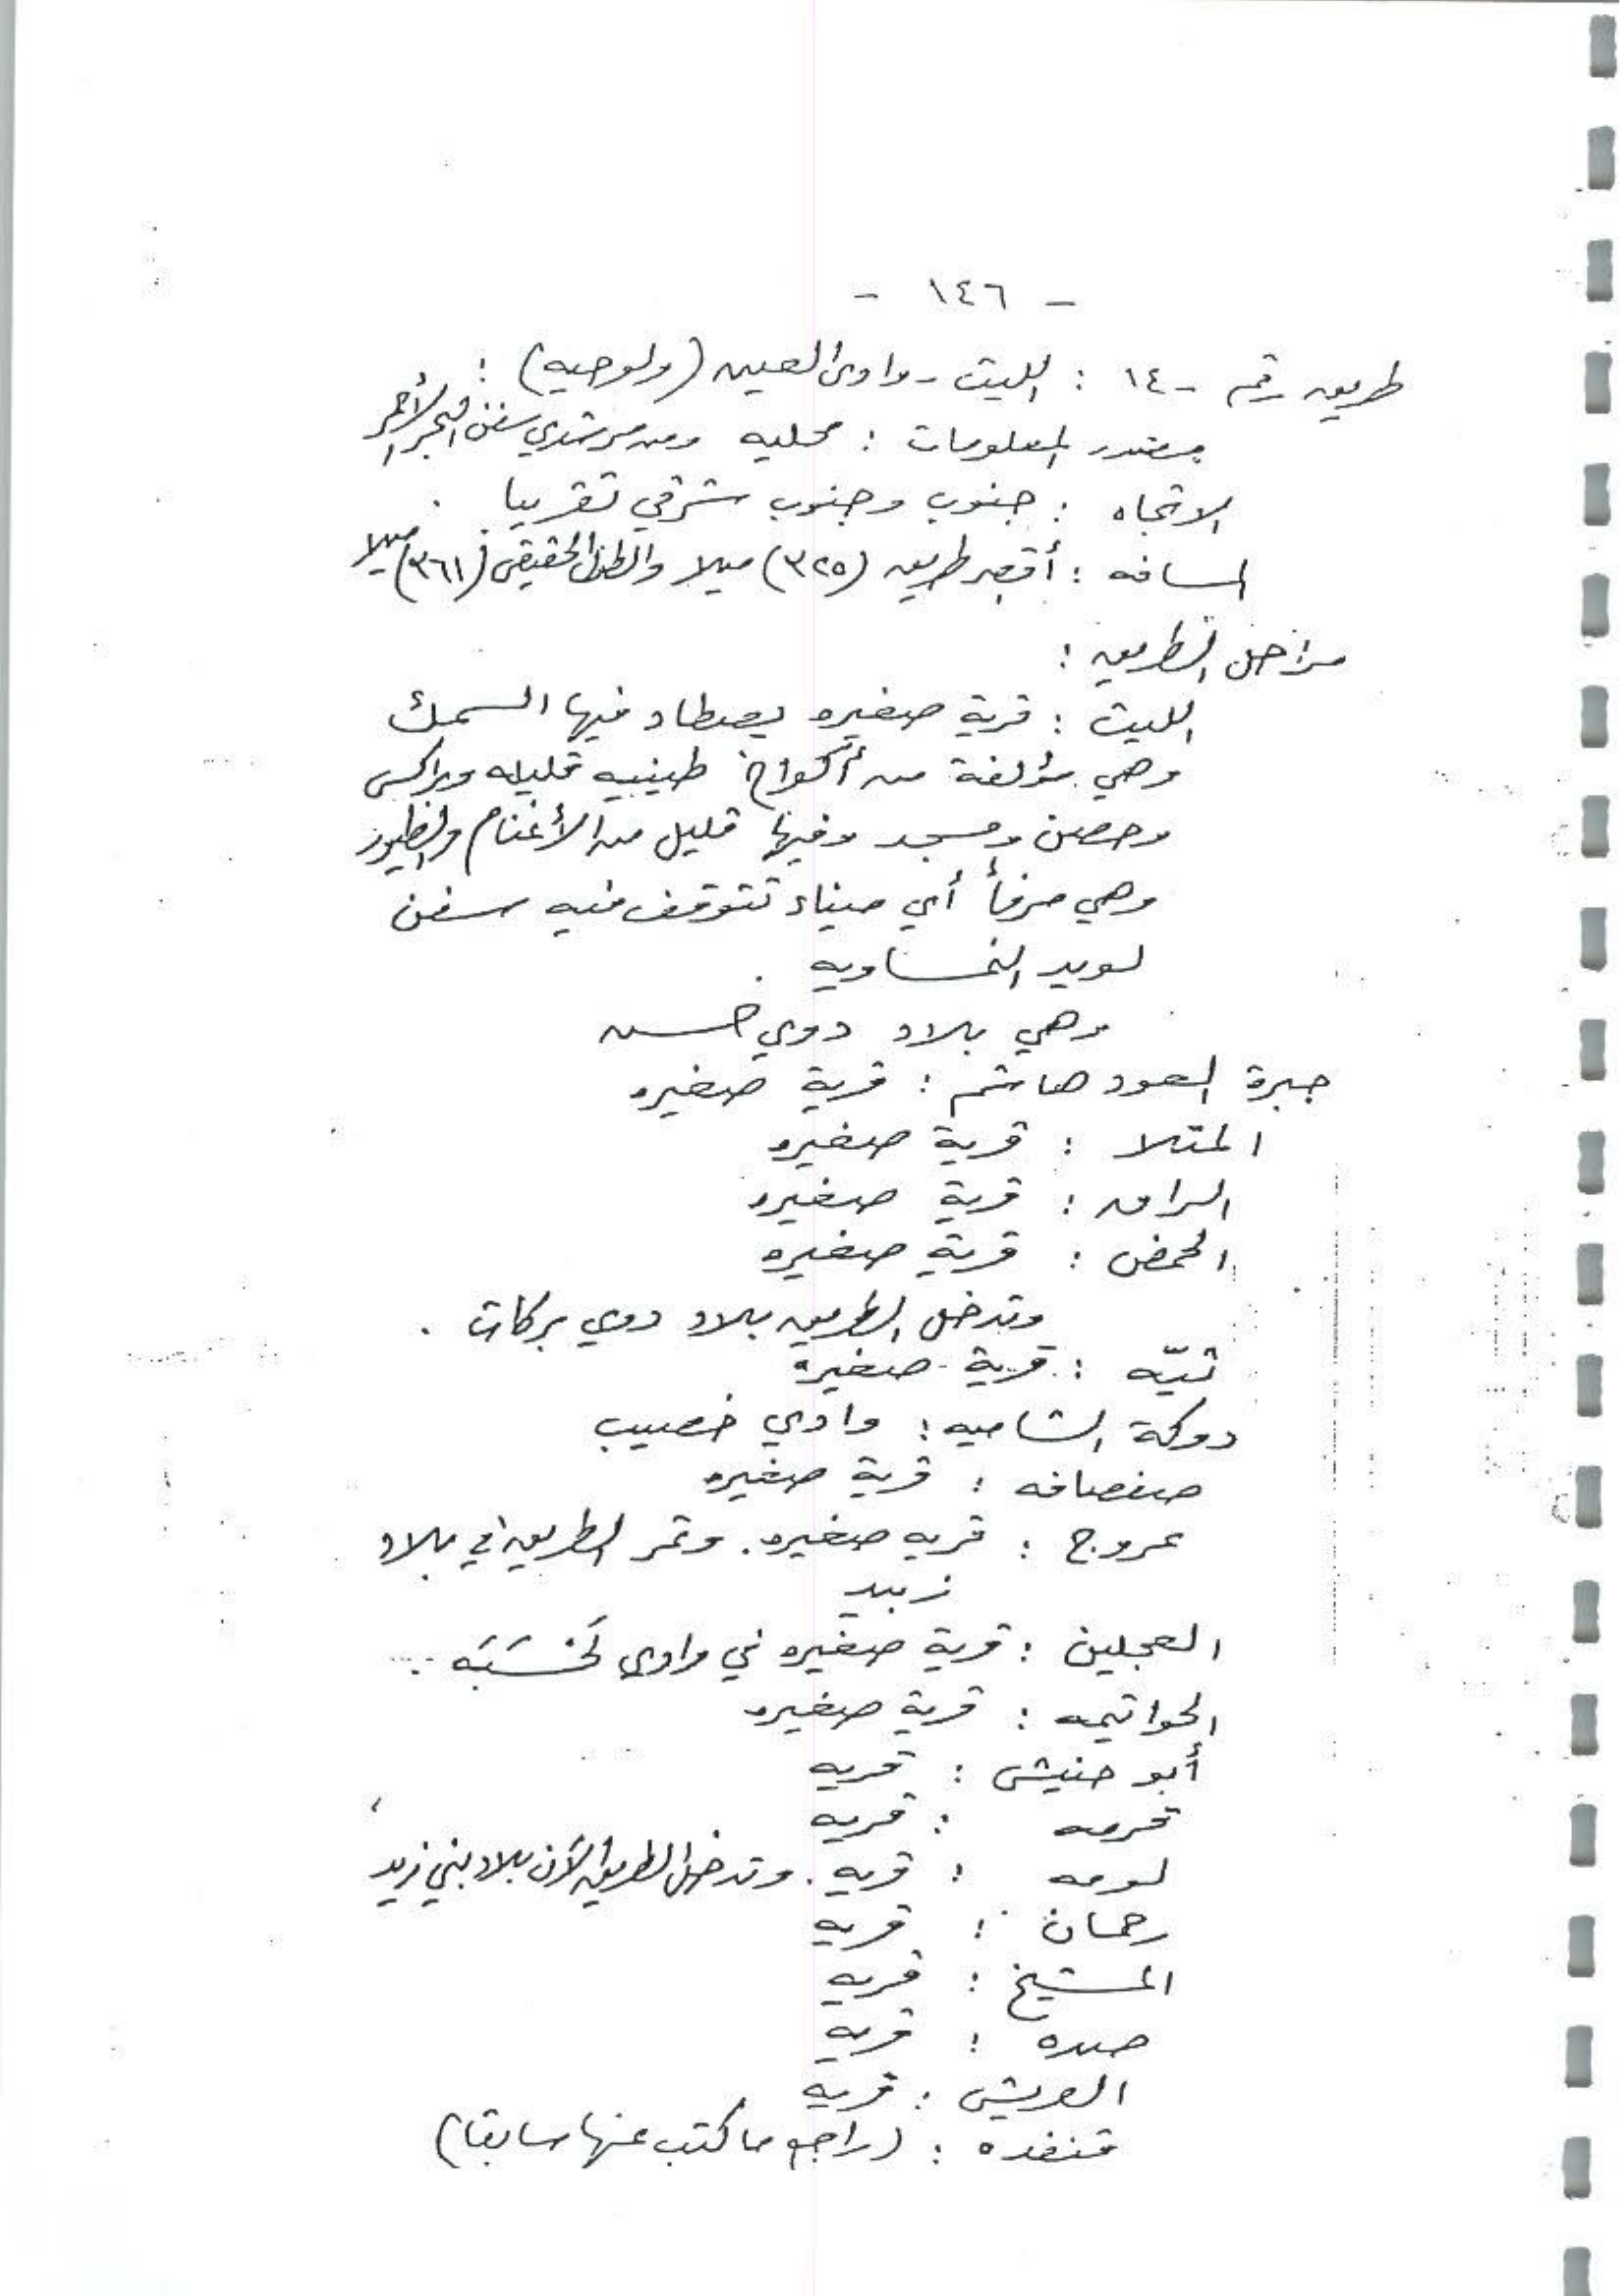 - ١٤٦ -
طريق رقم - ١٤ : الليث - وادى العين (ولوحيه) :
مصدر المعلومات : محليه ومن مرشدي سفن البحر الأحمر
الاتجاه : جنوب وجنوب شرقي تقريبا .
المسافه : أقصر طريق (٣٢٥) ميلا والطول الحقيقي (٣٦١) ميلا
مراحل الطريق :
الليث : قرية صغيره يصطاد فيها السمك
وهي مؤلفة من أكواخ طينيه قليله وبراكس
وحصن ومسجد وفيها قليل من الأغنام والطيور
وهي مرفأ أي ميناء تتوقف فيه سفن
لويد النمساويه .
وهي بلاد ذوي حسن
جبرة العود هاشم : قرية صغيره
المثلا : قرية صغيره
الراق : قرية صغيره
الحمض : قرية صغيره
وتدخل الطريق بلاد ذوي بركات .
ثيّه : قرية صغيره
دوكة الشاميه : وادي خصيب
صفصافه : قرية صغيره
عروج : قريه صغيره . وتمر الطريق في بلاد
زبيد
العجلين : قرية صغيره في وادى لخسَبَه .
الحواتيمه : قرية صغيره
أبو حنيش : قريه
تحرمه : قريه
لومه : قريه . وتدخل الطريق الآن بلاد بني زيد
رحمان : قريه
المشيخ : قريه
صده : قريه
العريش : قريه
قنفده : (راجع ما كتب عنها سابقا)